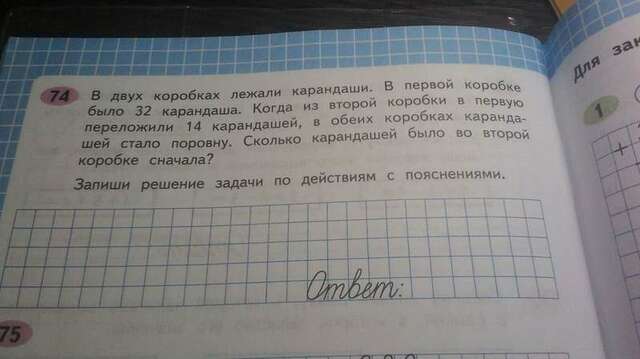 74 В двух коробках лежали карандаши. В первой коробке
было 32 карандаша. Когда из второй коробки в первую
переложили 14 карандашей, в обеих коробках каранда-
шей стало поровну. Сколько карандашей было во второй
коробке сначала?
Запиши решение задачи по действиям с пояснениями.
Ответ:
75
Для зак
1